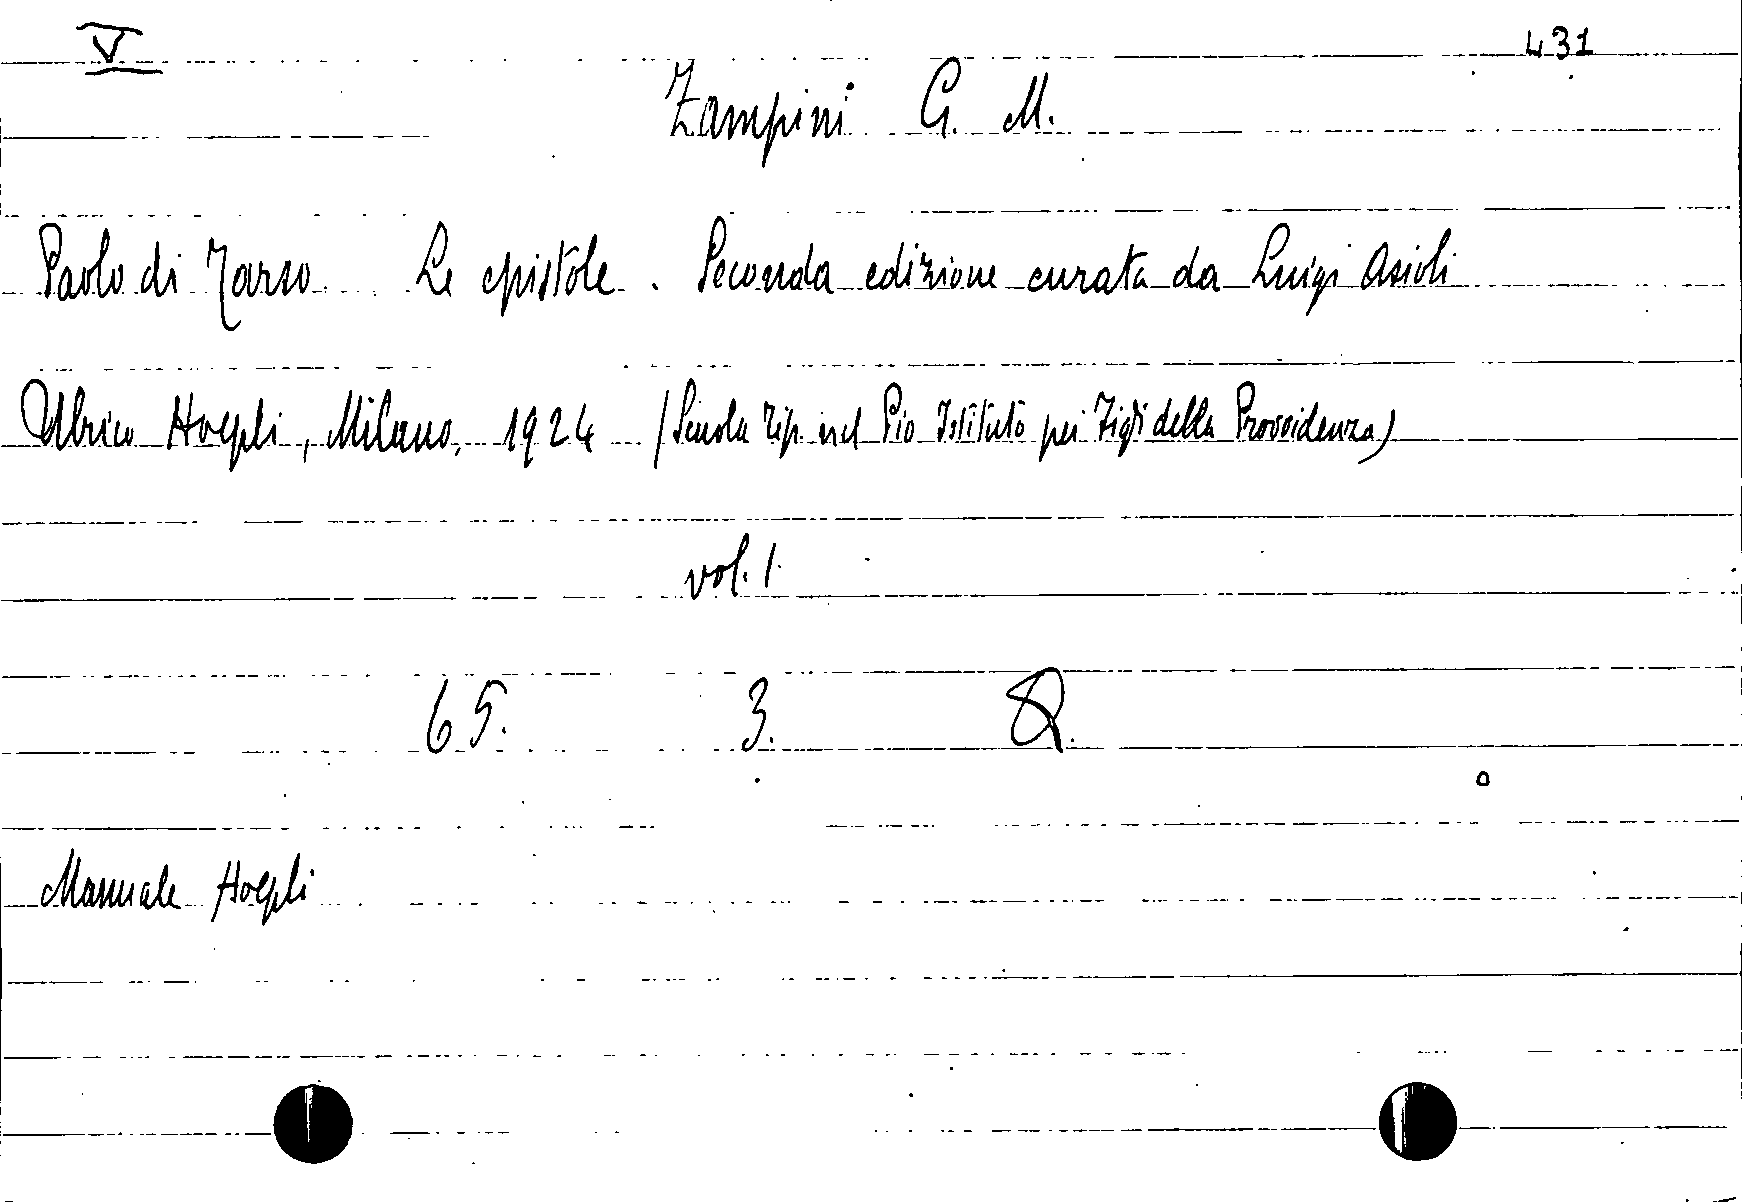 V 431
Zampini G. M.
Paolo di Tarso Le epistole. Seconda edizione curata da Luigi Asioli
Ulrico Hoepli, Milano, 1924 (Scuola Tip. nel Pio Istituto pei Figli della Provvidenza)
vol. 1.
65. 3. 8.
Manuale Hoepli